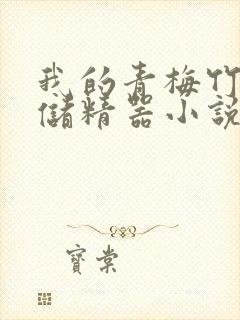 我的青梅竹
儲精器小說
寶棠